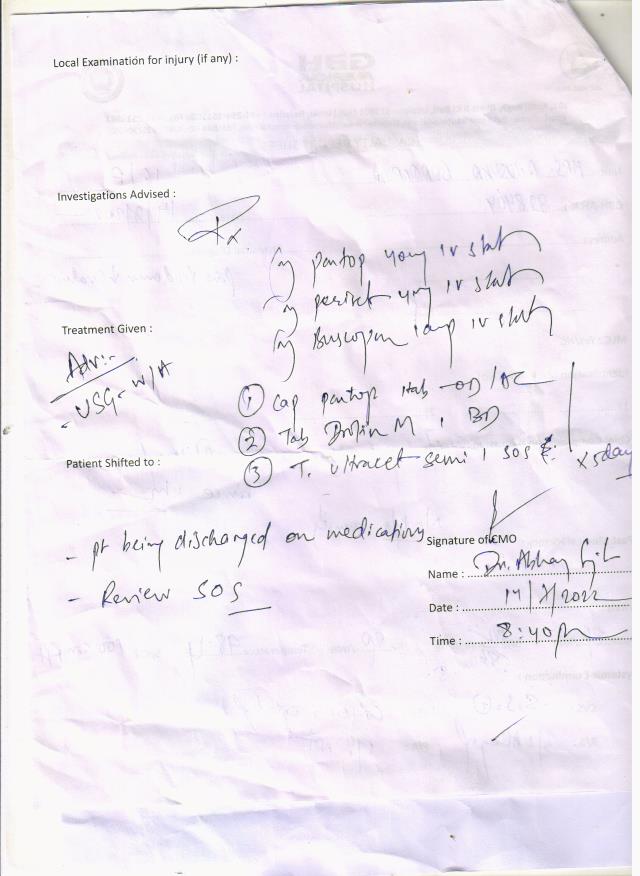 Local Examination for injury (if any) :
Investigations Advised :
Rx
Inj pantop 40mg IV stat
Inj 4mg IV stat
Inj Buscopan 1amp IV stat
Treatment Given :
Adv:-
- USG - W/A
① Cap pantop 1tab - OD/AC
② Tab M 1 BD
③ T. ultracet semi 1 SOS
x 5 day
Patient Shifted to :
- pt being discharged on medications
- Review SOS
Signature of CMO
Name : Dr. Abhay
Date : /2022
Time : 8:40pm